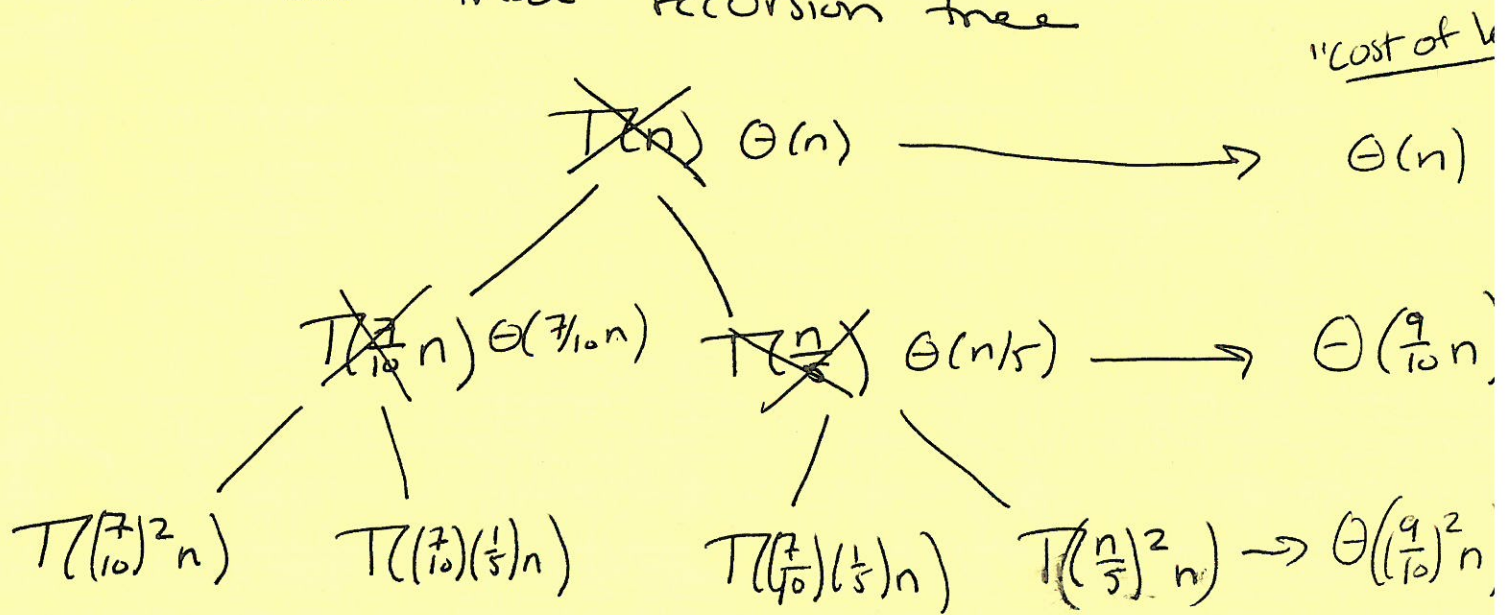 recursion tree
"cost of
T(n) Θ(n) → Θ(n)
T(7/10 n) Θ(7/10 n) T(n/5) Θ(n/5) → Θ(9/10 n)
T((7/10)²n) T((7/10)(1/5)n) T((7/10)(1/5)n) T((n/5)²n) → Θ((9/10)²n